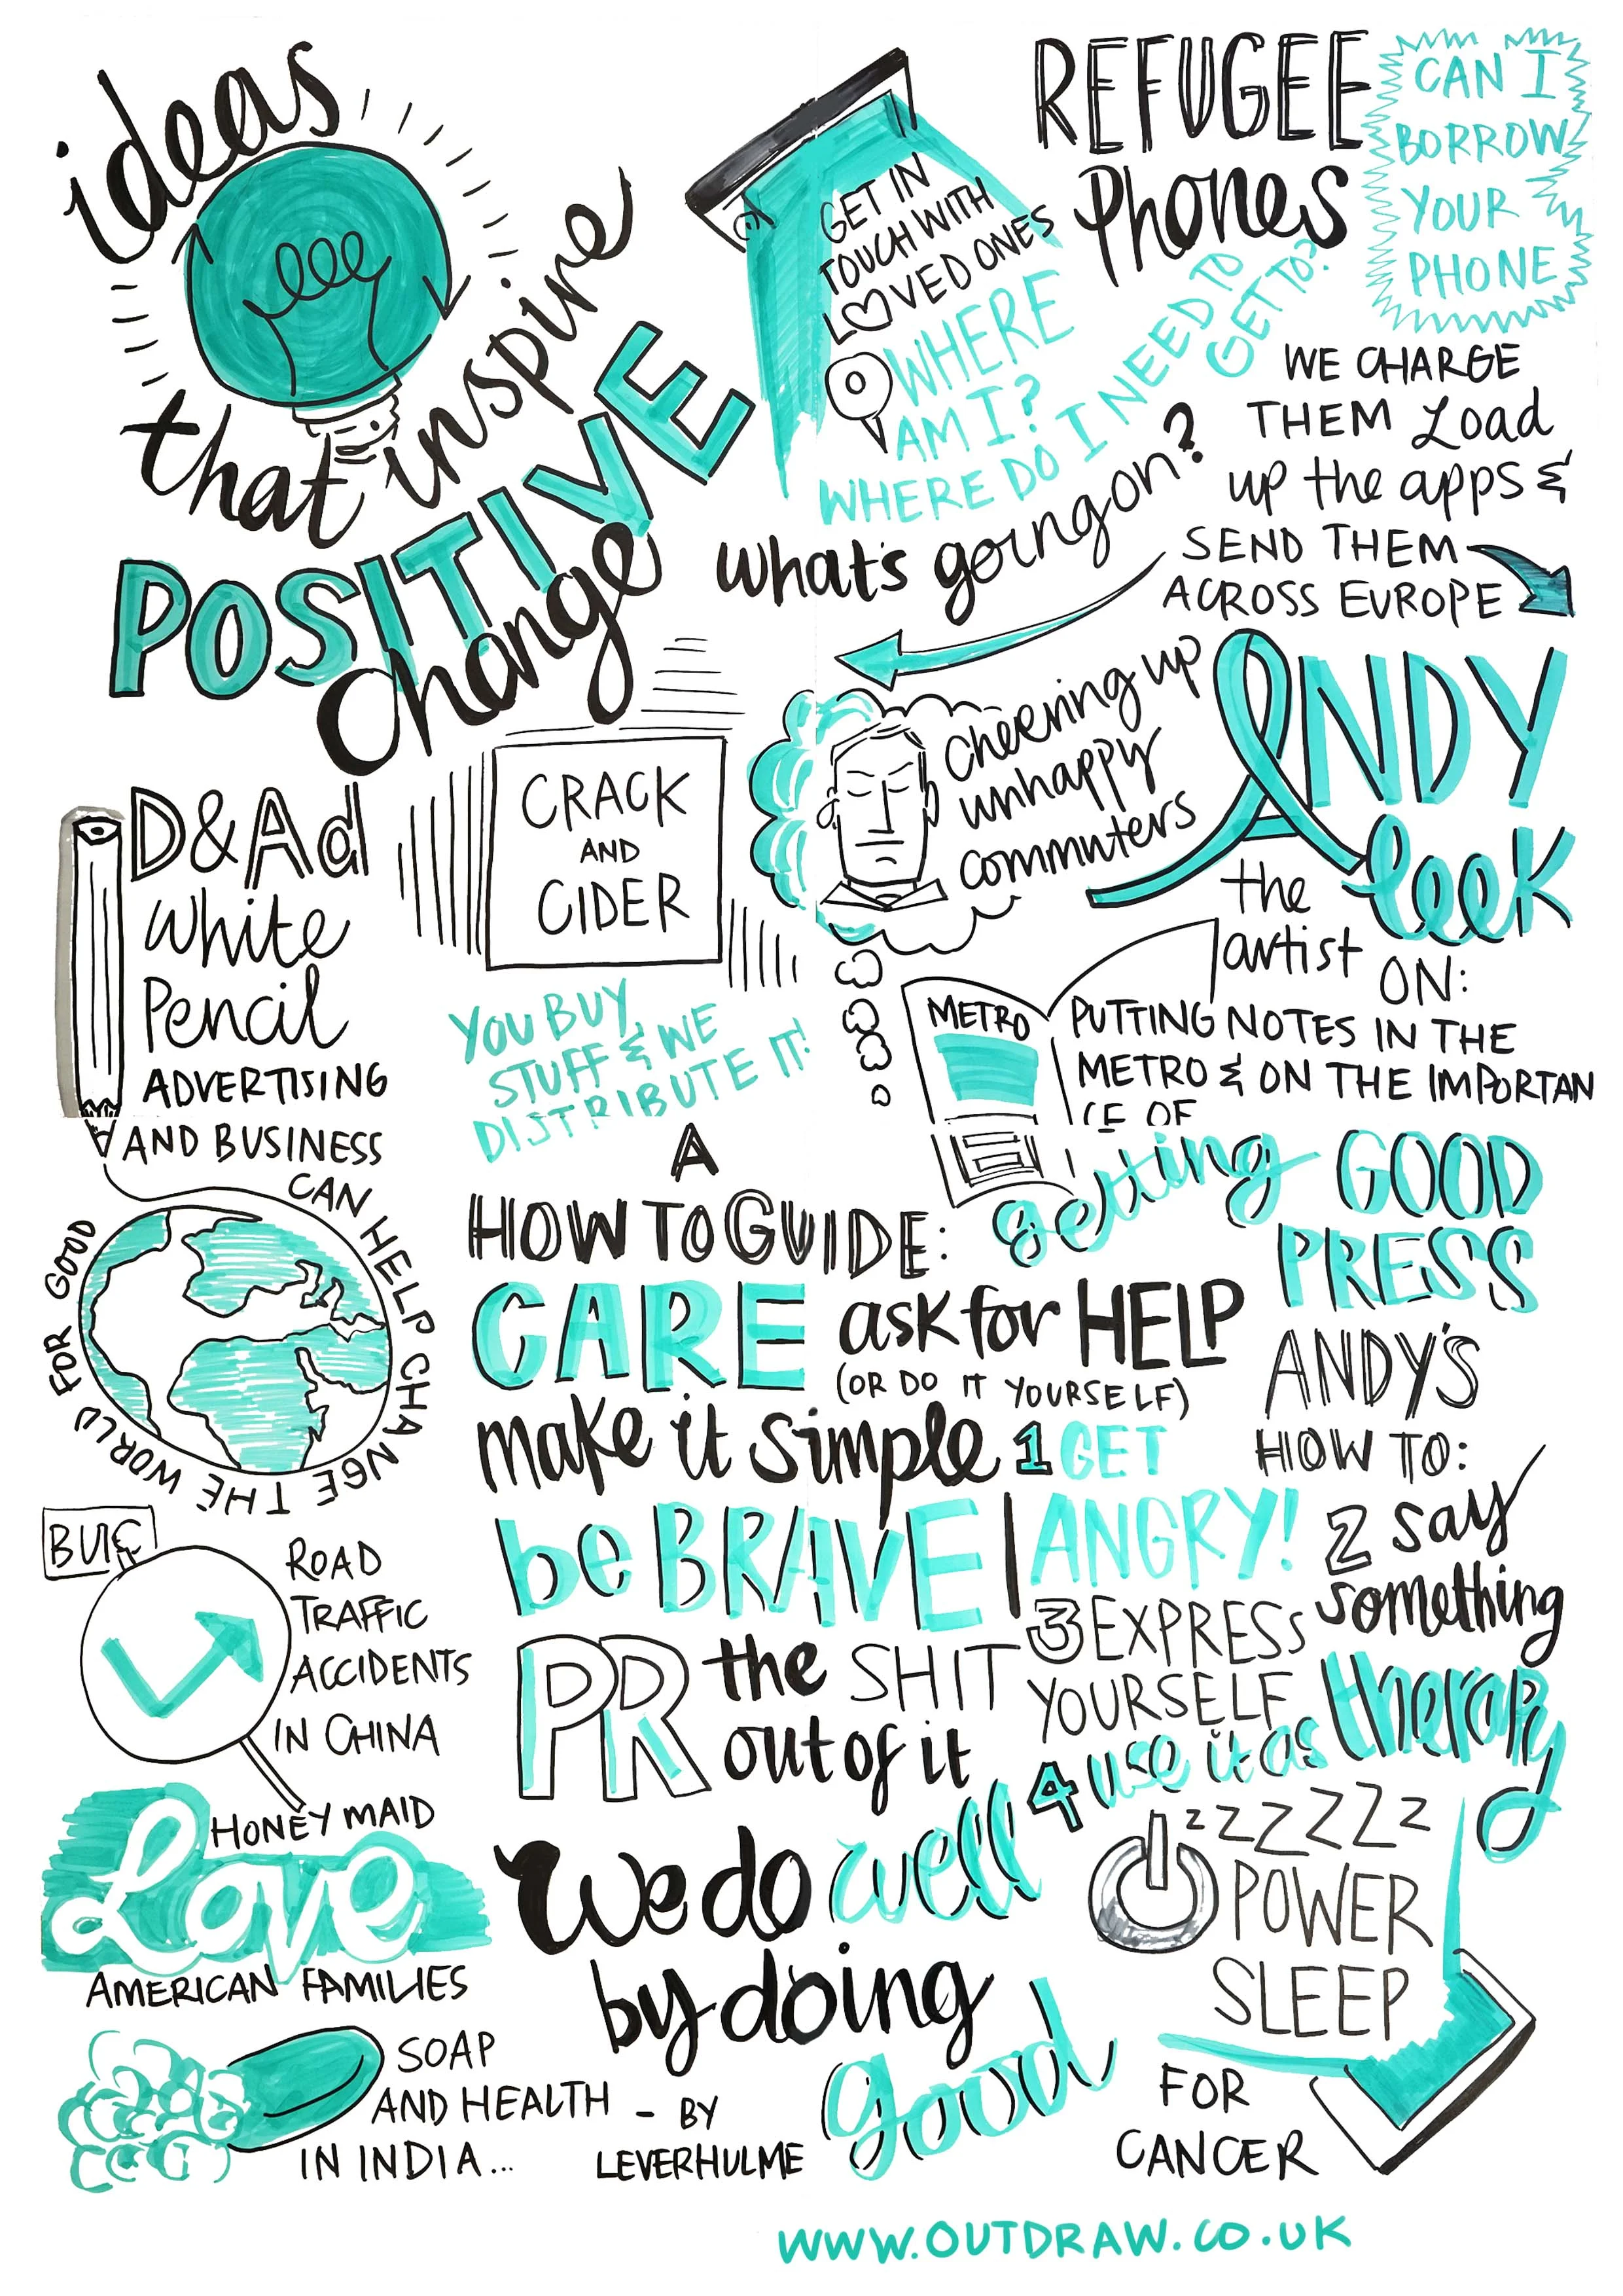 ideas
that inspire
POSITIVE
change
REFUGEE
Phones
CAN I
BORROW
YOUR
PHONE
GET IN
TOUCH WITH
LOVED ONES
WHERE
AM I?
WHERE DO I NEED TO
GET TO?
what's going on?
WE CHARGE
THEM Load
up the apps &
SEND THEM
ACROSS EUROPE
D&Ad
White
Pencil
ADVERTISING
AND BUSINESS
CAN HELP CHANGE THE WORLD FOR GOOD
CRACK
AND
CIDER
YOU BUY
STUFF & WE
DISTRIBUTE IT!
cheering up
unhappy
commuters
ANDY
leek
the
artist ON:
METRO
PUTTING NOTES IN THE
METRO & ON THE IMPORTAN
CE OF
getting GOOD
PRESS
A
HOW TO GUIDE:
CARE ask for HELP
(OR DO IT YOURSELF)
make it simple
be BRAVE
PR the SHIT
out of it
ANDY'S
HOW TO:
1 GET
ANGRY!
2 say
something
3 EXPRESS
YOURSELF
4 use it as therapy
BUIC
ROAD
TRAFFIC
ACCIDENTS
IN CHINA
HONEY MAID
Love
AMERICAN FAMILIES
SOAP
AND HEALTH
IN INDIA...
We do well
by doing
good
- BY
LEVERHULME
zzZZZzz
POWER
SLEEP
FOR
CANCER
WWW.OUTDRAW.CO.UK